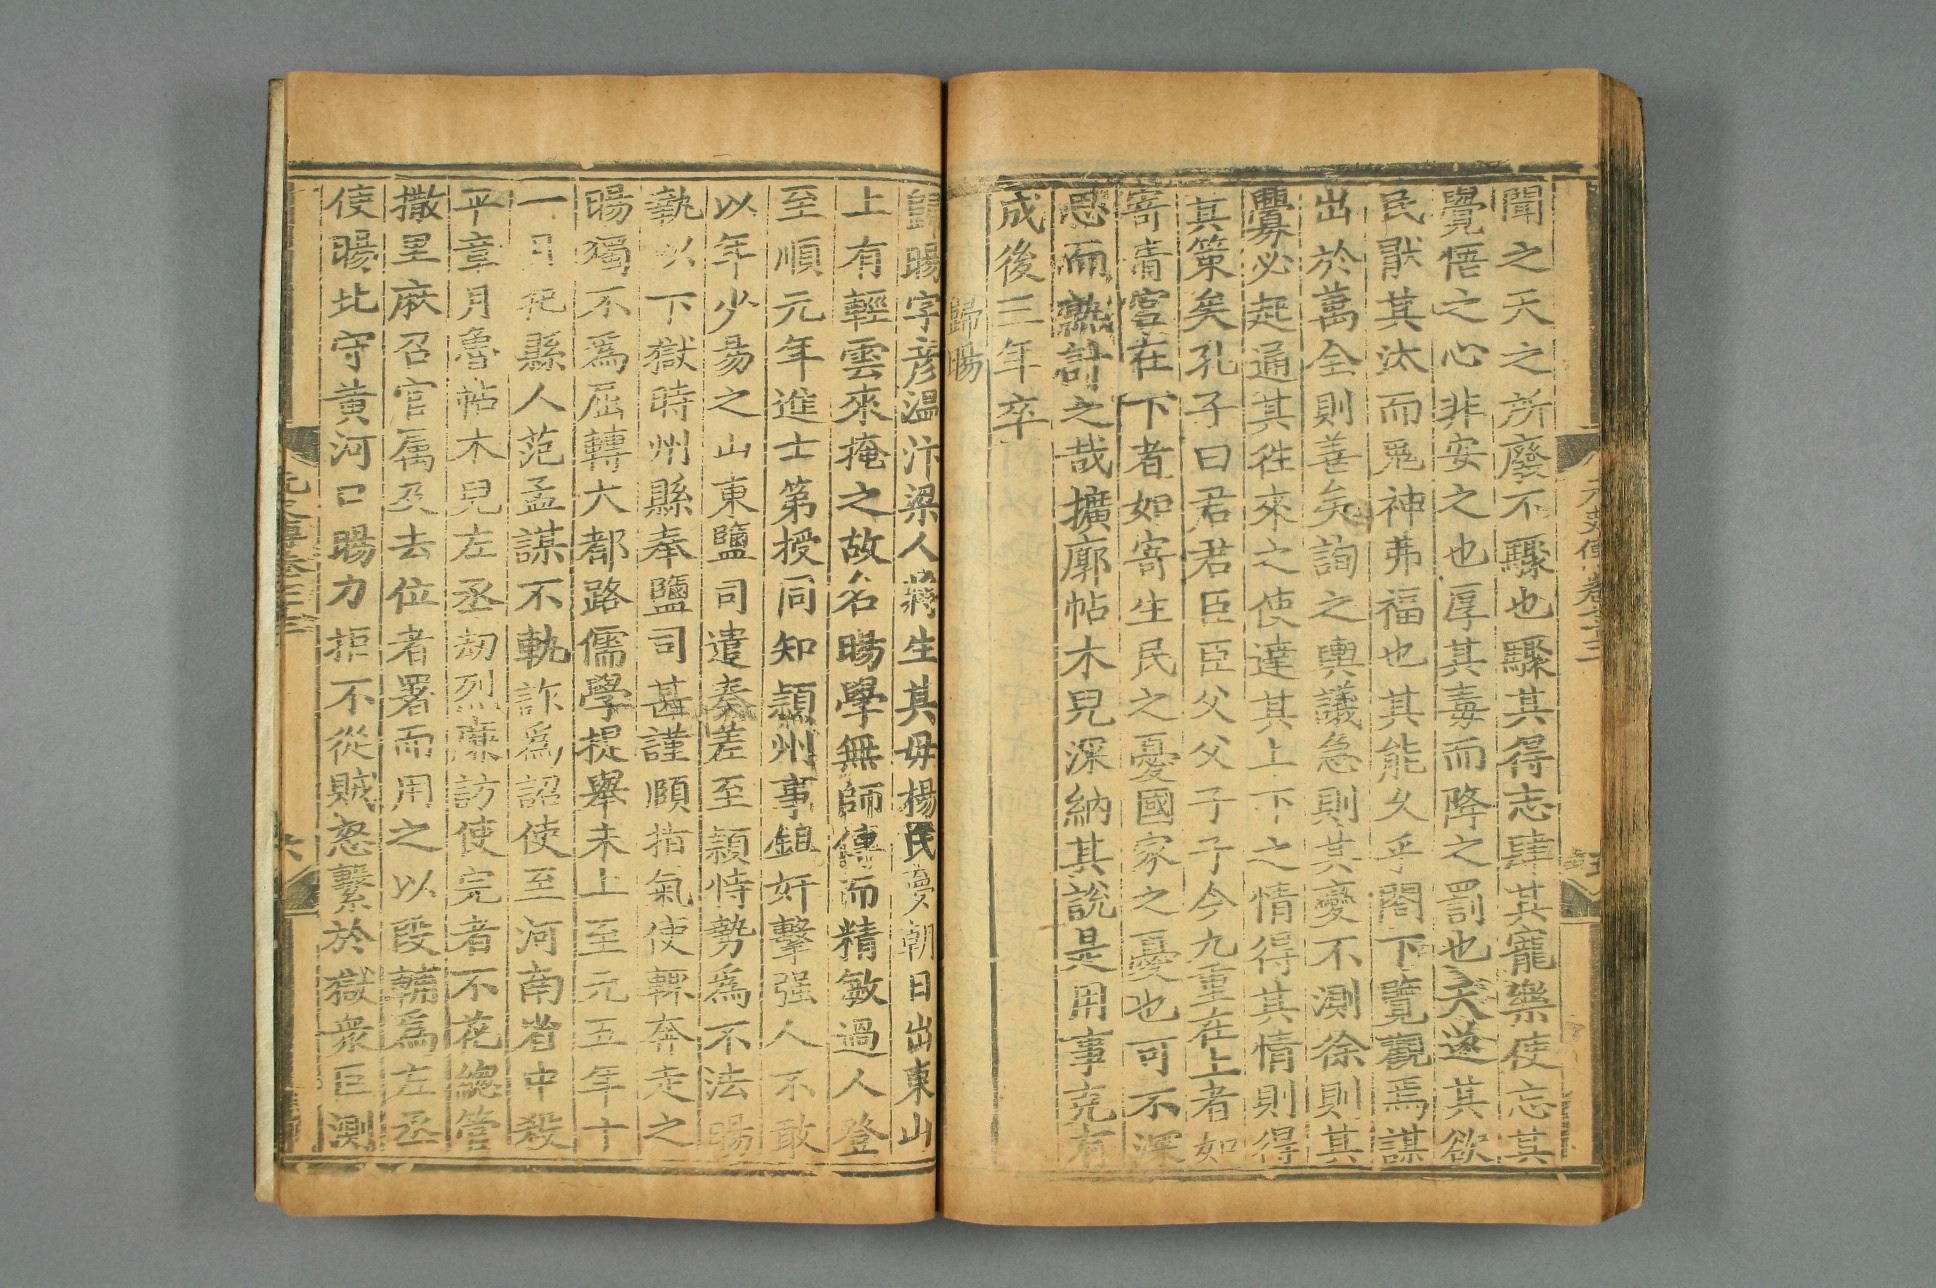 聞之天之所廢不驟也驟其得志肆其寵樂使忘其
覺悟之心非安之也厚其毒而降之罰也天遂其欲
民厭其汰而鬼神弗福也其能久乎閣下覽觀焉謀
出於萬全則善矣詢之輿議急則其變不測徐則其
釁必起通其往來之使達其上下之情得其情則得
其策矣孔子曰君君臣臣父父子子今九重在上者如
寄青宮在下者如寄生民之憂國家之憂也可不深
思而熟計之哉擴廓帖木兒深納其說是用事克有
成後三年卒
歸暘
歸暘字彥溫汴梁人將生其母楊氏夢朝日出東山
上有輕雲來掩之故名暘學無師傳而精敏過人登
至順元年進士第授同知潁州事鉏奸擊强人不敢
以年少易之山東鹽司遣奏差至潁恃勢爲不法暘
執以下獄時州縣奉鹽司甚謹頤指氣使輒奔走之
暘獨不爲屈轉大都路儒學提舉未上至元五年十
一月杞縣人范孟謀不軌詐爲詔使至河南省中殺
平章月魯帖木兒左丞劫烈廉訪使完者不花緫管
撒里麻召官属及去位者署而用之以段輔爲左丞
使暘北守黃河口暘力拒不從賊怒繫於獄衆叵測
元史傳卷七十三
五
六